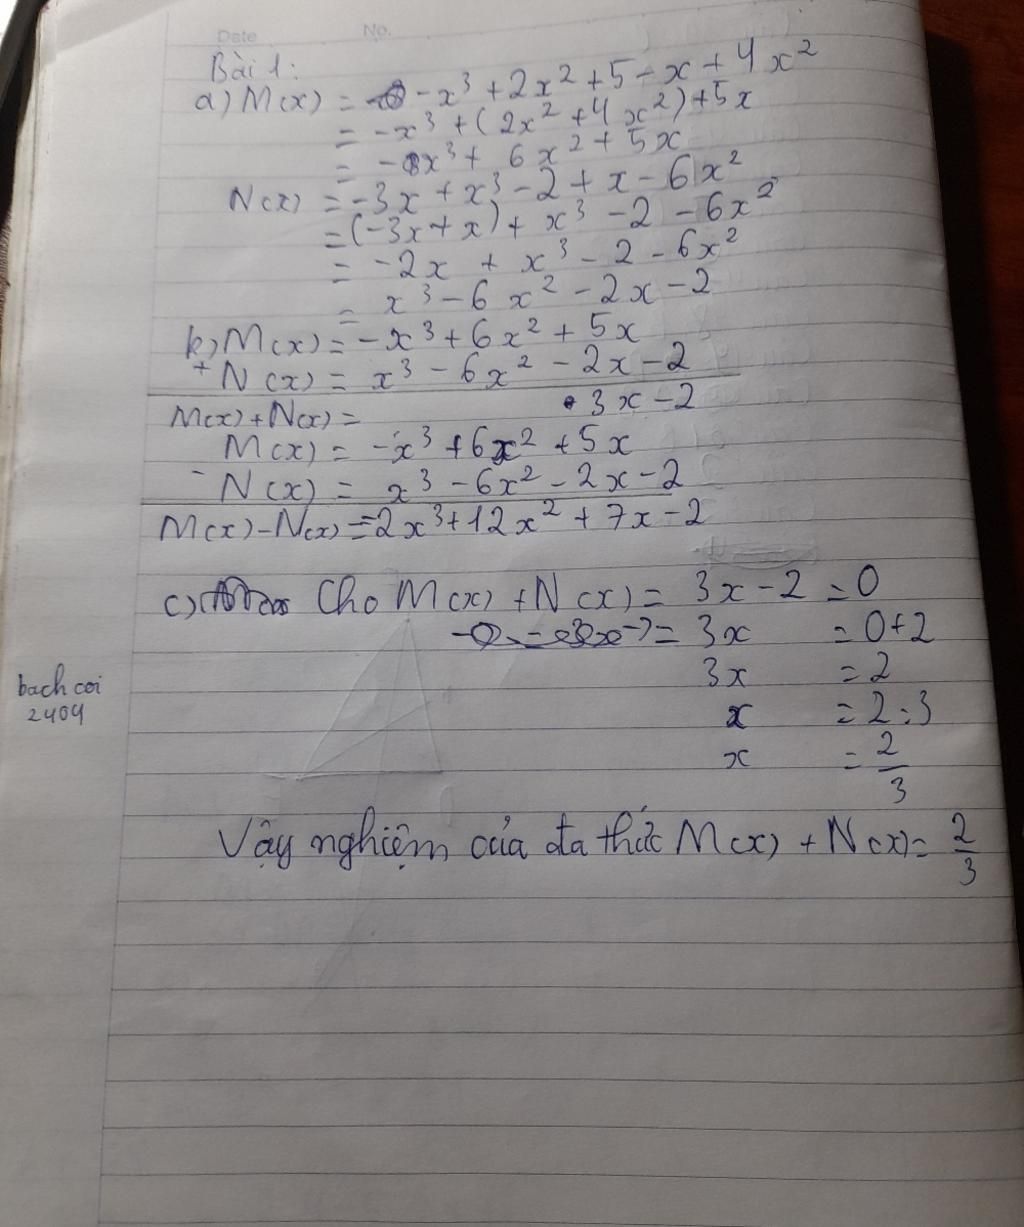 Date No.
Bài 1:
a) M(x) = -x³ + 2x² + 5 - x + 4x²
= -x³ + (2x² + 4x²) + 5x
= -x³ + 6x² + 5x
N(x) = -3x + x³ - 2 + x - 6x²
= (-3x + x) + x³ - 2 - 6x²
= -2x + x³ - 2 - 6x²
= x³ - 6x² - 2x - 2
b) M(x) = -x³ + 6x² + 5x
+ N(x) = x³ - 6x² - 2x - 2
M(x) + N(x) = 3x - 2
M(x) = -x³ + 6x² + 5x
- N(x) = x³ - 6x² - 2x - 2
M(x) - N(x) = -2x³ + 12x² + 7x - 2
c) Cho M(x) + N(x) = 3x - 2 = 0
= 3x = 0 + 2
3x = 2
x = 2 : 3
x = 2/3
Vậy nghiệm của đa thức M(x) + N(x) = 2/3
bach coi
2404